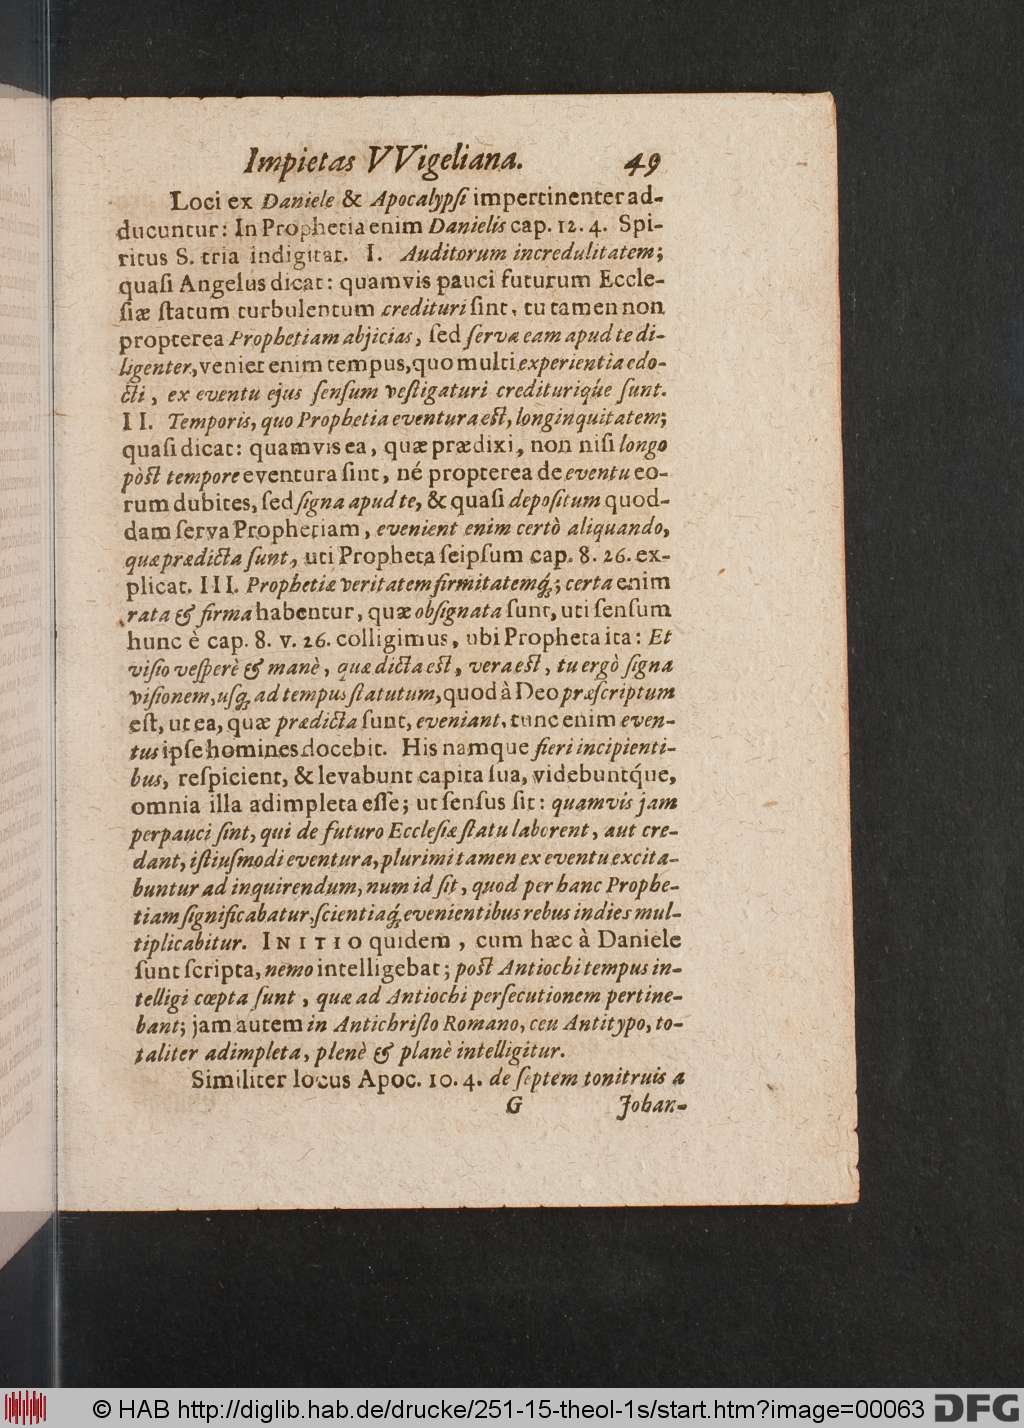 Impietas VVigeliana. 49
Loci ex Daniele & Apocalypſi impertinenter ad-
ducuntur: In Prophetia enim Danielis cap. 12. 4. Spi-
ritus S. tria indigitat. I. Auditorum incredulitatem;
quaſi Angelus dicat: quamvis pauci futurum Eccle-
ſiæ ſtatum turbulentum credituri ſint, tu tamen non
propterea Prophetiam abjicias, ſed ſerva eam apud te di-
ligenter, veniet enim tempus, quo multi experientia edo-
cti, ex eventu ejus ſenſum veſtigaturi credituriq́ue ſunt.
II. Temporis, quo Prophetia eventura eſt, longinquitatem;
quaſi dicat: quamvis ea, quæ prædixi, non niſi longo
pòſt tempore eventura ſint, né propterea de eventu eo-
rum dubites, ſed ſigna apud te, & quaſi depoſitum quod-
dam ſerva Prophetiam, evenient enim certò aliquando,
quæ prædicta ſunt, uti Propheta ſeipſum cap. 8. 26. ex-
plicat. III. Prophetiæ veritatem firmitatemq́;; certa enim
rata & firma habentur, quæ obſignata ſunt, uti ſenſum
hunc è cap. 8. v. 26. colligimus, ubi Propheta ita: Et
viſio veſperè & manè, quæ dicta eſt, vera eſt, tu ergò ſigna
viſionem, uſq; ad tempus ſtatutum, quod à Deo præſcriptum
eſt, ut ea, quæ prædicta ſunt, eveniant, tunc enim even-
tus ipſe homines docebit. His namque fieri incipienti-
bus, reſpicient, & levabunt capita ſua, videbuntq́ue,
omnia illa adimpleta eſſe; ut ſenſus ſit: quamvis jam
perpauci ſint, qui de futuro Eccleſiæ ſtatu laborent, aut cre-
dant, iſtiuſmodi eventura, plurimi tamen ex eventu excita-
buntur ad inquirendum, num id ſit, quod per hanc Prophe-
tiam ſignificabatur, ſcientiaq́; evenientibus rebus indies mul-
tiplicabitur. INITIO quidem, cum hæc à Daniele
ſunt ſcripta, nemo intelligebat; poſt Antiochi tempus in-
telligi cœpta ſunt, quæ ad Antiochi perſecutionem pertine-
bant; jam autem in Antichriſto Romano, ceu Antitypo, to-
taliter adimpleta, plenè & planè intelligitur.
Similiter locus Apoc. 10. 4. de ſeptem tonitruis a
G Johan-
© HAB http://diglib.hab.de/drucke/251-15-theol-1s/start.htm?image=00063 DFG